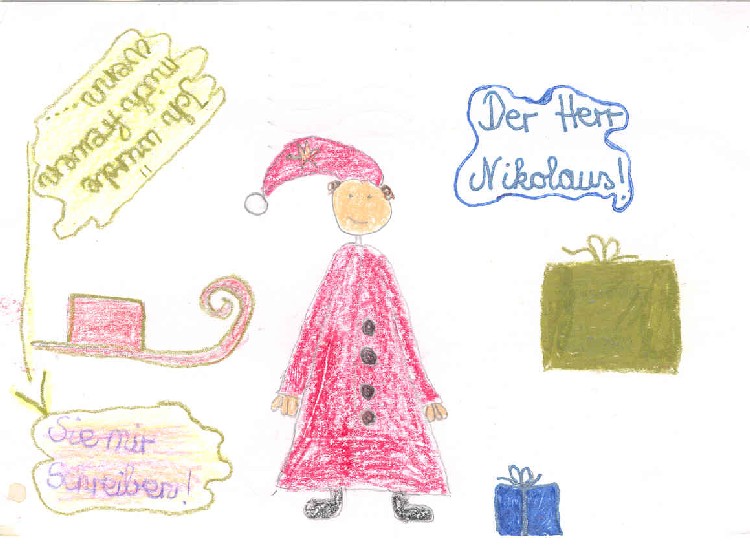 Der Herr
Nikolaus!
Ich würde
mich freuen
wenn .....
Sie mir
Schreiben!